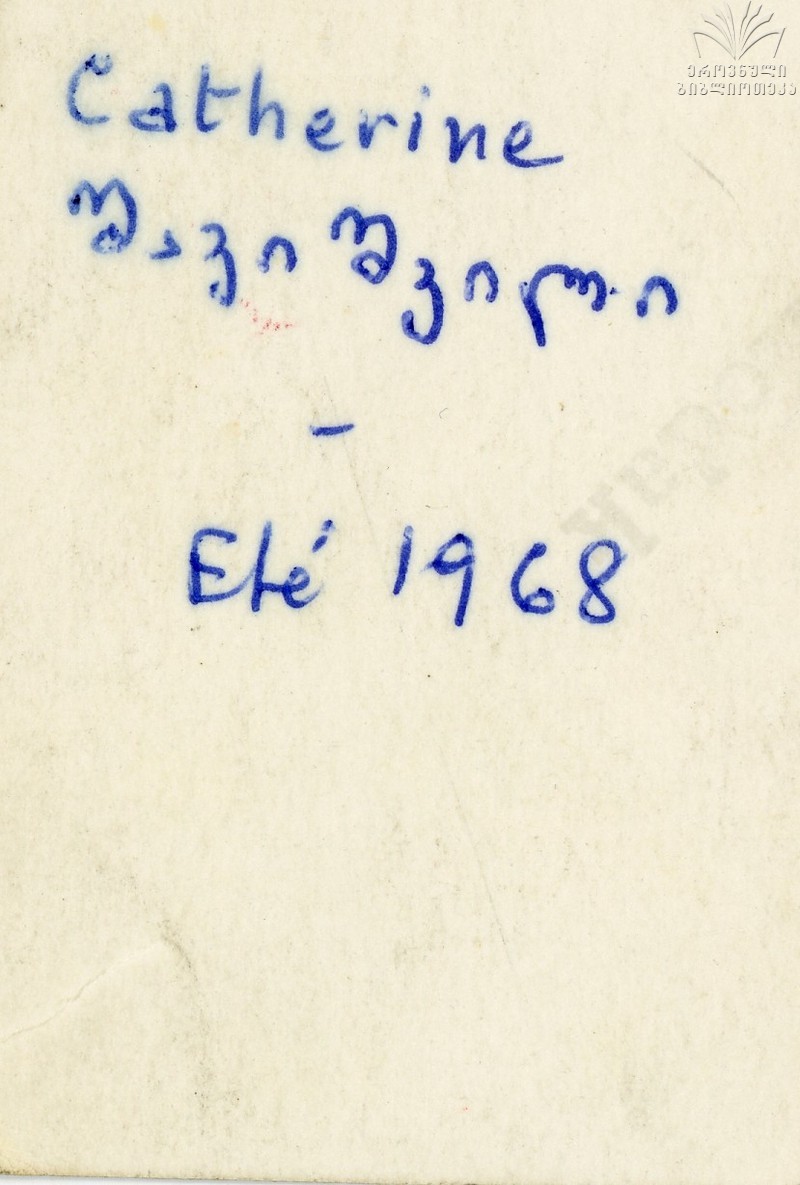 ეროვნული
ბიბლიოთეკა
Catherine
შავიშვილი
-
Eté 1968